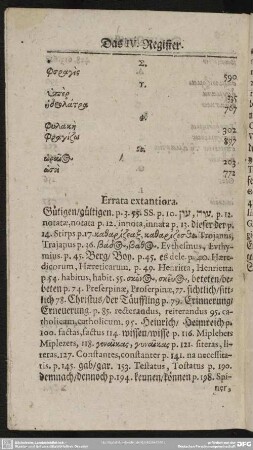 Das IV. Register.
Σ.
σφραγὶς 590
Υ.
ὑπὲρ 535
767
φ.
φυλακὴ 302
φραγίζω 857
Ω.
203
ὦτα 772
Errata extantiora.
Gütigen/gültigen. p. 3. 55: SS. p. 10. עיר, עין p. 12.
notatæ, notata p. 12. innota, innata p. 13. dieser der p.
14. Stirps p. 17. καθαρίζεαι, καθαρίζεσθε. Trojanu,
Trajanus p. 26. Euthesimus, Euthy-
mius. p. 45. Berg/Boy. p. 45. es dele. p. 40. Hæte-
dicorum, Hæreticorum, p. 49. Henrita, Henrietta.
p. 54. habitus, habit. 55. σκιὰν, σκεύει, beteten/be
beten p. 74. Preserpinæ, Proserpinæ, 77. sichtlich/sitt-
lich 78. Christus/der Täuffling p. 79. Erinnerung/
Erneuerung. p. 85. recterandus, reiterandus 95. ca-
tholicam, catholicum. 95. Heinrich/Heimreich p.
100. factas, factus 114. wisen/wisse p. 116. Miplehets
Miplezets, 118. γυναῖκας, γυναίκας p. 121. siteras, li-
teras, 127. Constantes, constanter p. 141. na necessita-
tis, p. 145. gab/gar. 153. Testatus, Tostatus p. 190.
demnach/dennoch p. 194. kennen/können p. 198. Spi-
ner,